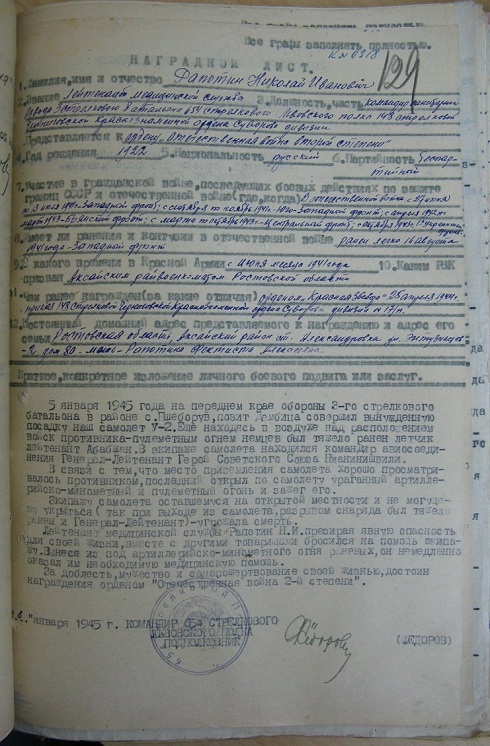 Все графы заполнять полностью.
КN0318
НАГРАДНОЙ ЛИСТ.
129
1. Фамилия, имя и отчество Рапотин Николай Иванович
2. Звание Лейтенант медицинской службы 3. Должность, часть командир санвзвода
стрелкового батальона 654 стрелкового Львовского полка 148 стрелковой
Черниговской Краснознаменной ордена Суворова дивизии
Представляется к ордену "Отечественная война второй степени"
4. Год рождения 1922 5. Национальность русский 6. Партийность Беспар-
тийный
7. Участие в гражданской войне, последующих боевых действиях по защите
границ СССР и отечественной войне (где, когда) В отечественной войне
1941 Западный фронт;
фронт; с марта Центральный фронт;
8. Имеет ли ранения и контузии в отечественной войне ранен легко 16 августа
1941 года - Западный фронт
9. С какого времени в Красной Армии с июня месяца 1941 года 10. Каким РВК
призван Аксайским райвоенкоматом Ростовской области
11. Чем ранее награжден (за какие отличия) орденом "Красная Звезда" 25 апреля 1944 г.
приказ 148 стрелковой Черниговской Краснознаменной ордена Суворова дивизии № 17/н.
12. Постоянный, домашний адрес представляемого к награждению и адрес его
семьи Ростовская область, Аксайский район ст. Александровка ул. Энтузиастов
- 2 дом 80 - мать - Рапотина
Краткое, конкретное изложение личного боевого подвига или заслуг.
5 января 1945 года на переднем крае обороны 2-го стрелкового
батальона в районе с. Пшеборув, повит Дембица совершил вынужденную
посадку наш самолет У-2. Еще находясь в воздухе над расположением
войск противника-пулеметным огнем немцев был тяжело ранен летчик
лейтенант Абабян. В экипаже самолета находился командир авиасоеди-
нения Генерал-Лейтенант Герой Советского Союза Благнишвили.
В связи с тем, что место приземления самолета хорошо просматри-
валось противником, последний открыл по самолету ураганный артилле-
рийско-минометный и пулеметный огонь и зажег его.
Экипажу самолета оставшемуся на открытой местности и не могуще-
му укрыться (так при выходе из самолета, разрывом снаряда был тяжело
ранен и Генерал-Лейтенант) -угрожала смерть.
Лейтенант медицинской службы Рапотин Н.И. презирая явную опасность
для своей жизни, вместе с другими товарищами бросился на помощь экипа-
жу. Вынеся из под артиллерийско-минометного огня раненых, он немедленно
оказал им необходимую медицинскую помощь.
За доблесть, мужество и самопожертвование своей жизнью, достоин
награждения орденом "Отечественная война 2-й степени".
"января 1945 г. КОМАНДИР 654 СТРЕЛКОВОГО
ЛЬВОВСКОГО ПОЛКА
ПОДПОЛКОВНИК
(ФЕДОРОВ)